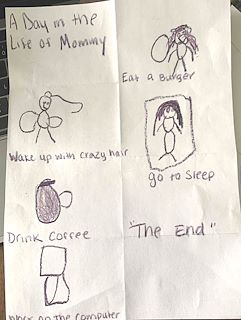 A Day in the
Life of Mommy
Wake up with crazy hair
Drink Coffee
Work on the computer
Eat a Burger
go to Sleep
"The End"